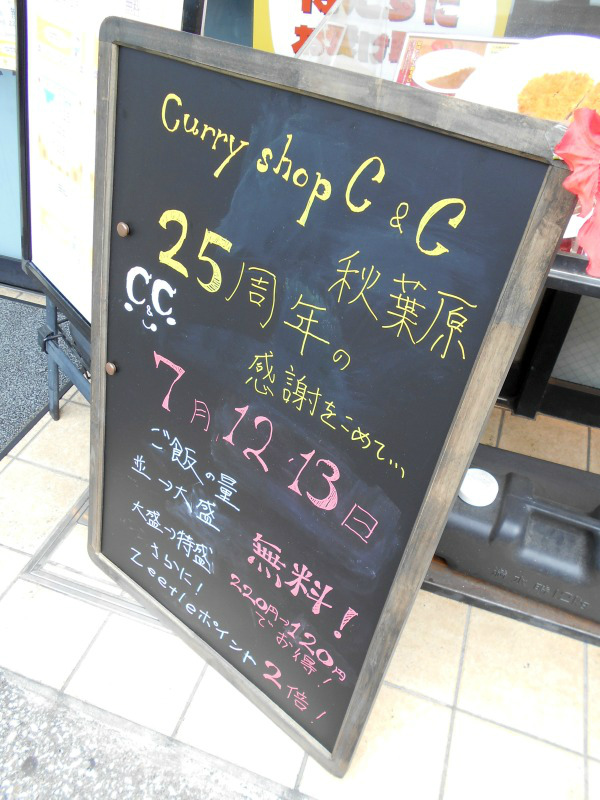 Curry shop C & C
秋葉原
25周年の
C&C
感謝をこめて...
7月12・13日
ご飯の量
並→大盛 無料!
大盛→特盛 220円→120円
でお得!
さらに!
Zeetleポイント2倍!